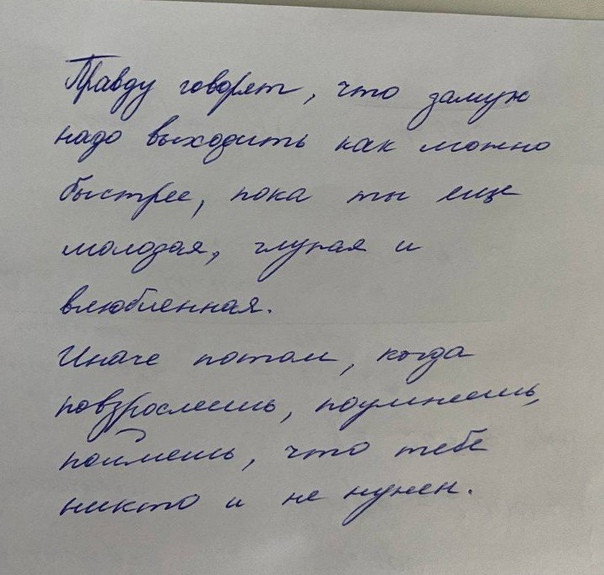 Правду говорят, что замуж
надо выходить как можно
быстрее, пока ты еще
молодая, глупая и
влюбленная.
Иначе потом, когда
повзрослеешь, поумнеешь,
поймешь, что тебе
никто и не нужен.